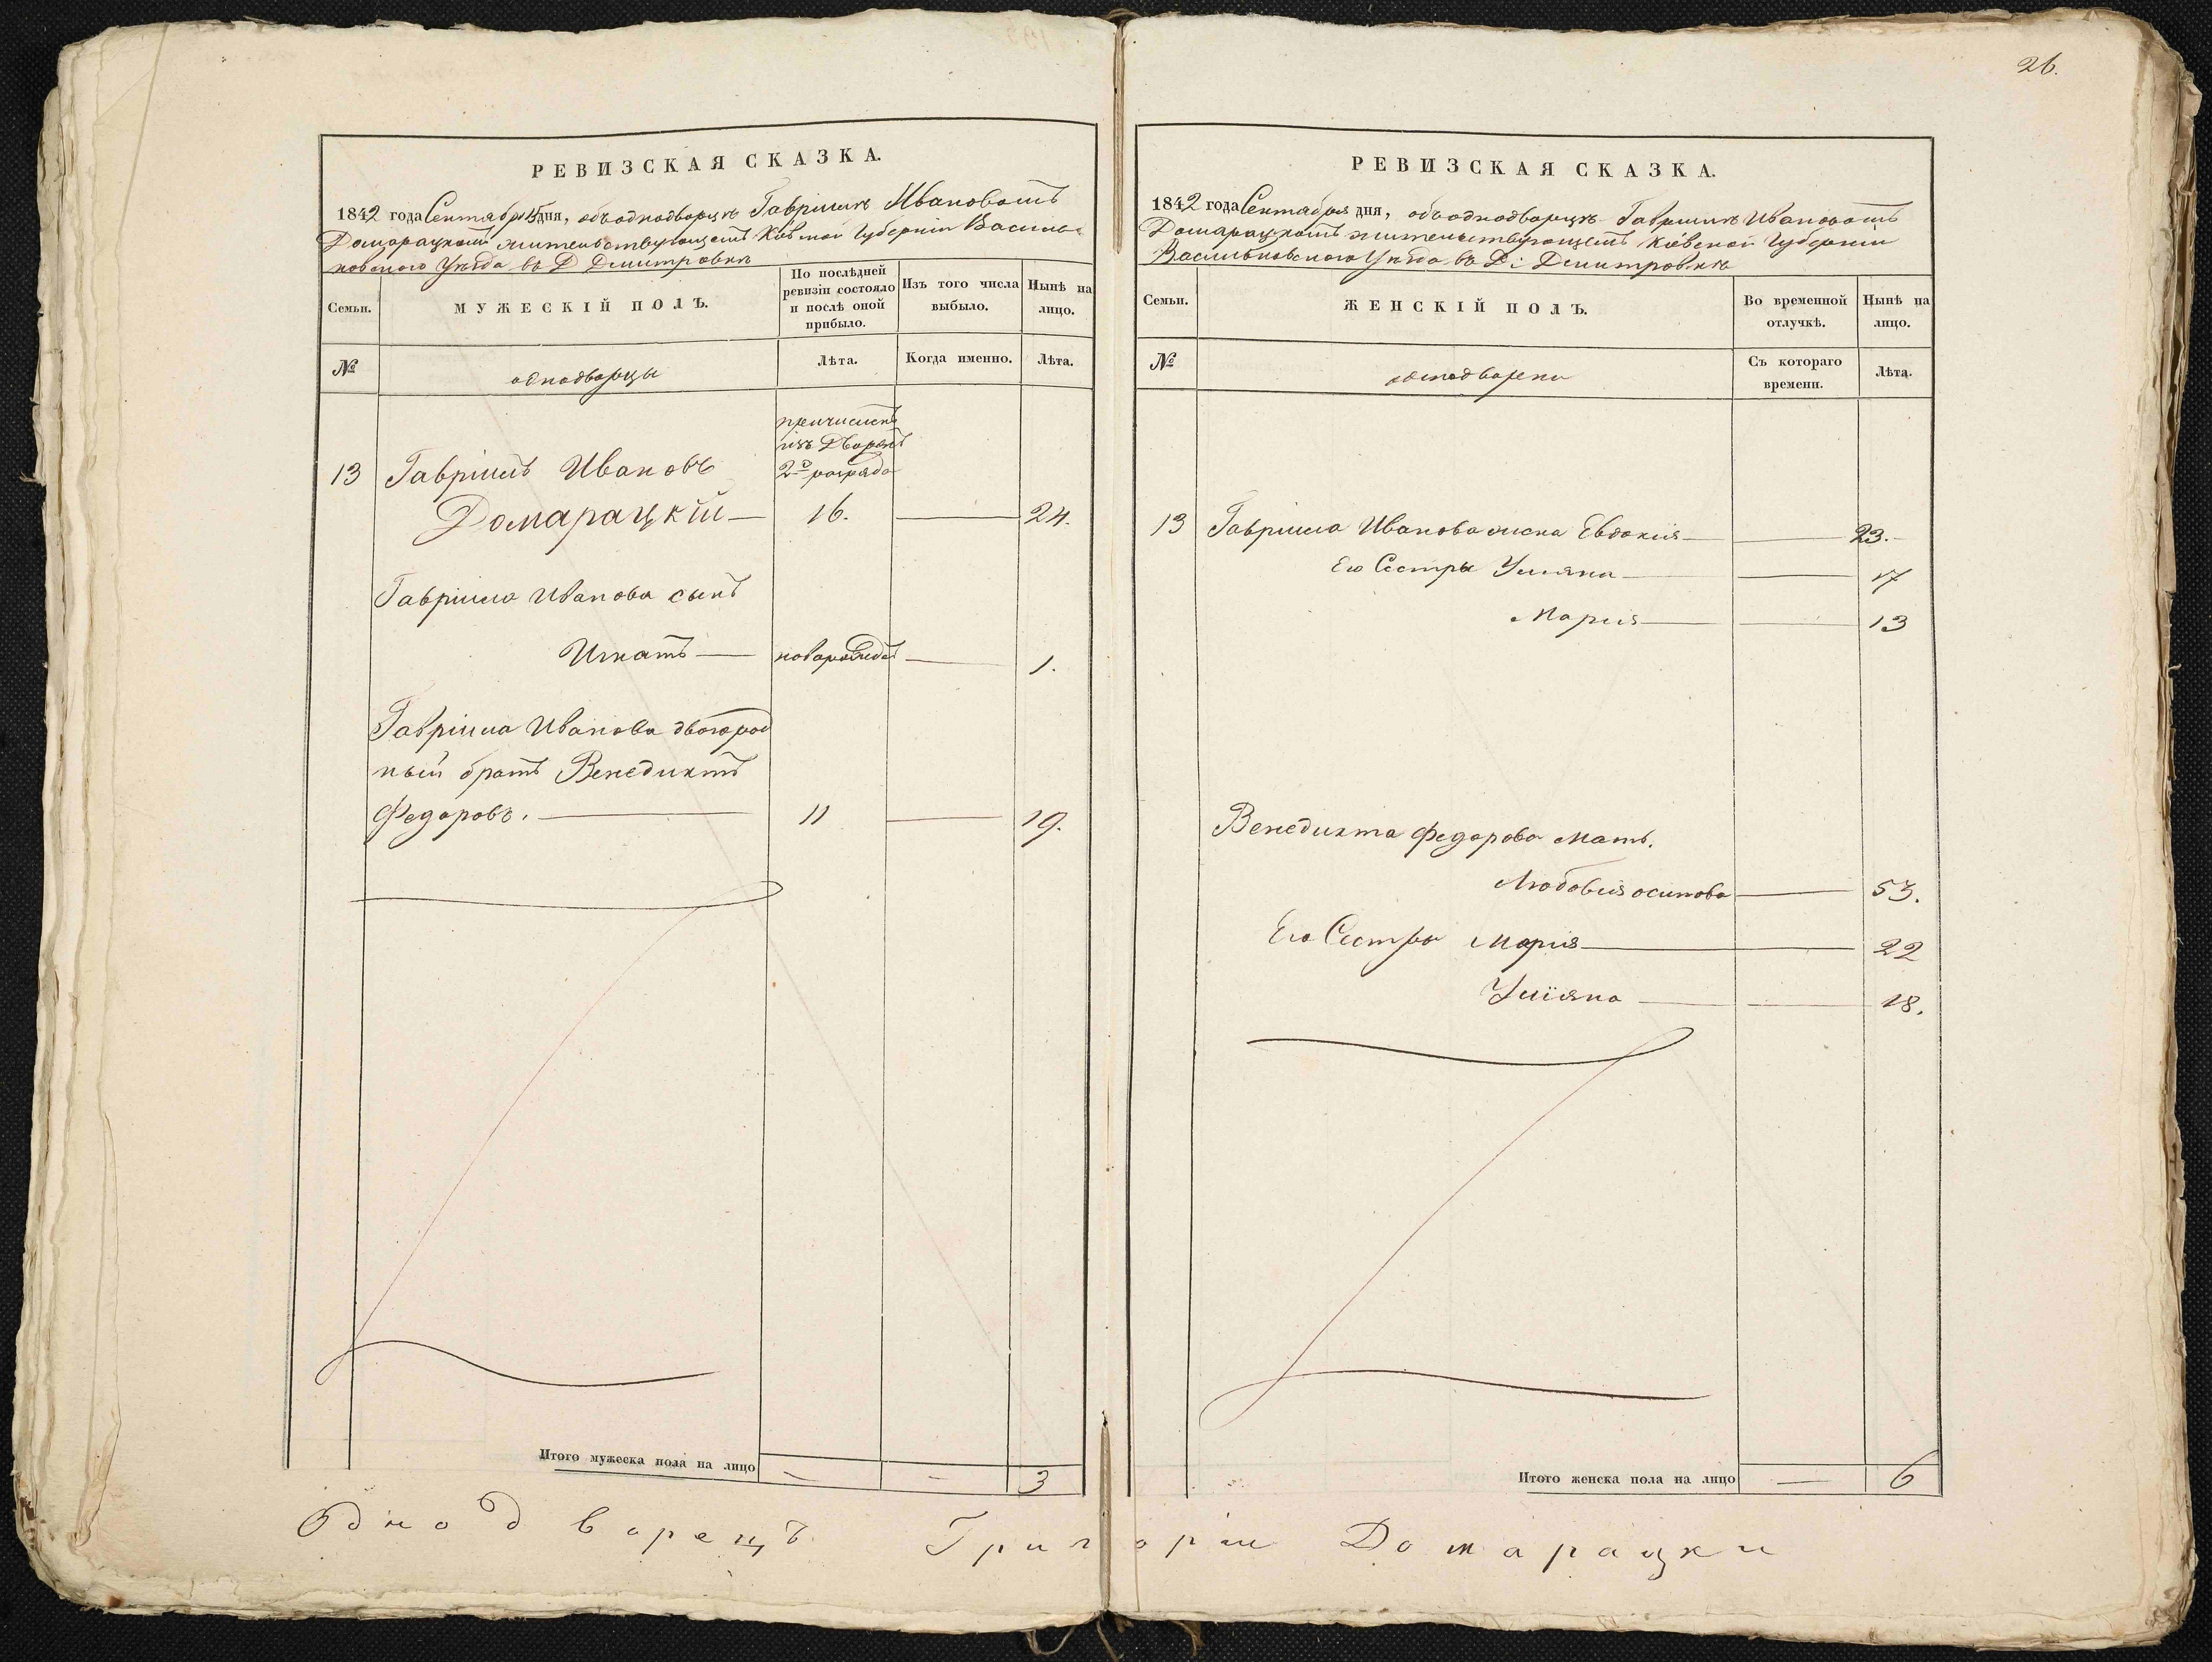 26.
РЕВИЗСКАЯ СКАЗКА.
1842 года Сентября 15 дня, объ однодворцѣ Гавріилѣ Ивановомъ
Домарацкомъ жительствующемъ Кіевской Губерніи Василь-
ковского Уѣзда въ Д Дмитровкѣ
Семьи.
МУЖЕСКІЙ ПОЛЪ.
По послѣдней
ревизіи состояло
и послѣ оной
прибыло.
Изъ того числа
выбыло.
Нынѣ на
лицо.
№
однодворцы
Лѣта.
Когда именно.
Лѣта.
причисленъ
изъ Дворянъ
2го разряда
13 Гавріилъ Ивановъ
Домарацкій — 16. — 24.
Гавріила Иванова сынъ
Игнатъ — новорожденъ — 1.
Гавріила Иванова двоюрод
ный братъ Венедиктъ
Федоровъ. — 11 — 19.
Итого мужеска пола на лицо — — 3
РЕВИЗСКАЯ СКАЗКА.
1842 года Сентября дня, объ однодворцѣ Гавріилѣ Ивановомъ
Домарацкомъ жительствующемъ Кіевской Губерніи
Васильковского Уѣзда въ Д: Дмитровкѣ
Семьи.
ЖЕНСКІЙ ПОЛЪ.
Во временной
отлучкѣ.
Нынѣ на
лицо.
№
однодворки
Съ котораго
времени.
Лѣта.
13 Гавріила Иванова жена Евдокія — — 23.
Его Сестры Уліяна — — 17
Марія — — 13
Венедикта Федорова Мать.
Любовія осипова — 53.
Его Сестры Марія — — 22
Уліяна — — 18.
Итого женска пола на лицо — 6
Однодворецъ Григорій Домарацки